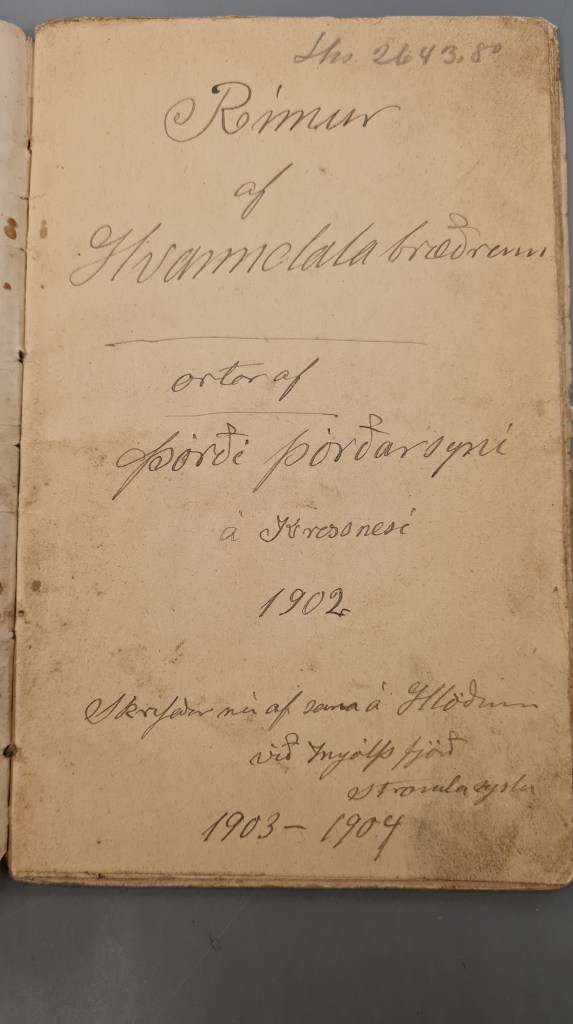 Lbs. 2643, 8º
Rímur
af
Hvanndalabræðrum
ortar af
Þórði Þórðarsyni
á Krossnesi
1902
Skrifaðar nú af sama á Hlöðum
við Ingólfsfjörð
Strandasyslu
1903 – 1904